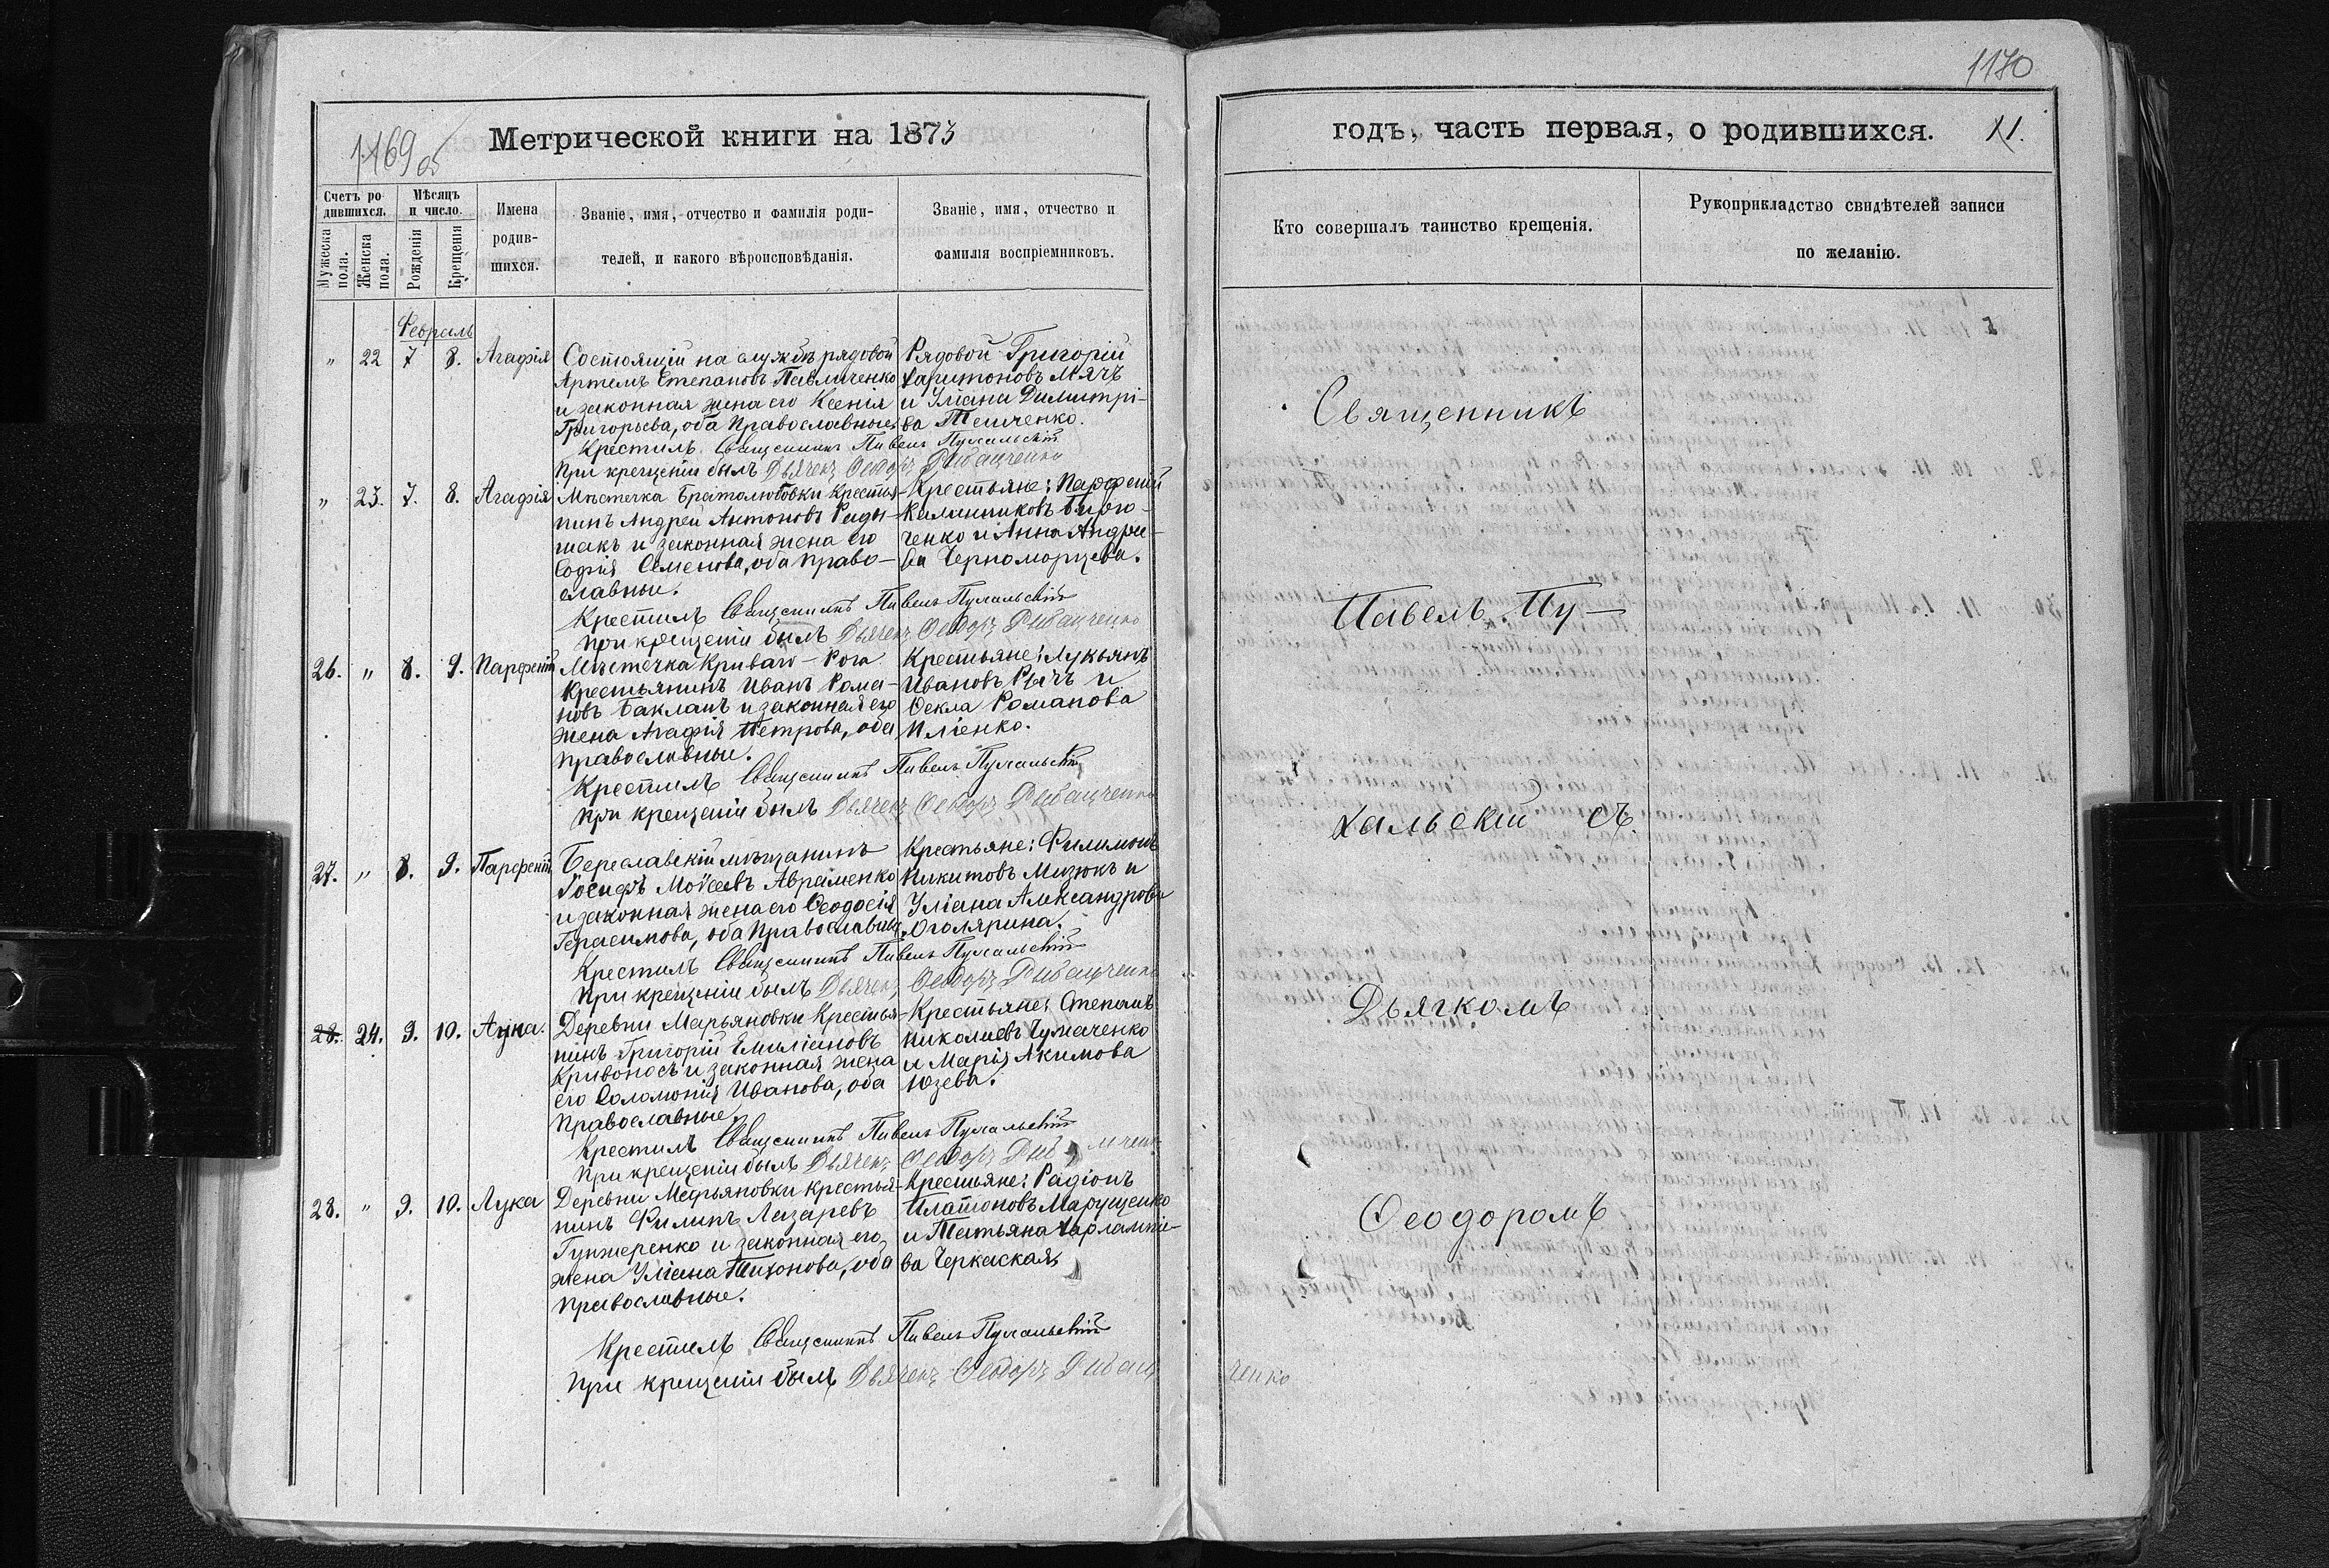 1169 об
Метрической книги на 1873
Счетъ родившихся.
Мѣсяцъ и число.
Мужеска пола.
Женска пола.
Рожденія
Крещенія
Имена родив-
шихся.
Званіе, имя, отчество и фамилія роди-
телей, и какого вѣроисповѣданія.
Званіе, имя, отчество и
фамилія воспріемниковъ.
Февраль
" 22 7 8. Агафія
Состоящій на службѣ рядовой
Артемъ Степановъ Павличенко
и законная жена его Ксенія
Григорьева, оба Православные.
Рядовой Григорій
Харитоновъ Мячъ
и Уліана Димитрі-
ва
Крестилъ Священникъ Павелъ Пухальскій
При крещеніи былъ Дьячекъ Ѳеодоръ
" 23. 7. 8. Агафія
Мѣстечка Братолюбовки Крестья-
нинъ Андрей Антоновъ
и законная жена его
Софія Семенова, оба право-
славные.
Крестьяне: Парфеній
Калинниковъ
и Анна Андре-
ва Черноморцева.
Крестилъ Священникъ Павелъ Пухальскій
при крещеніи былъ Дьячекъ Ѳеодоръ
26. " 8. 9. Парфеній
Мѣстечка Криваго-Рога
крестьянинъ Иванъ Рома-
новъ Бакланъ и законная его
жена Агафія Петрова, оба
православные.
Крестьяне: Лукьянъ
Ивановъ и
Ѳекла Романова
Иліенко.
Крестилъ Священникъ Павелъ Пухальскій
при крещеніи былъ Дьячекъ Ѳеодоръ
27. " 8. 9. Парфеній
Бериславскій мѣщанинъ
Іосифъ Моѵсеевъ Авраменко
и законная жена его Ѳеодосія
Герасимова, оба Православные.
Крестьяне: Филимонъ
Никитовъ Мизюкъ и
Уліана Александрова
Оголярина.
Крестилъ Священникъ Павелъ Пухальскій
При крещеніи былъ Дьячекъ Ѳеодоръ
28. 24. 9. 10. Анна.
Деревни Марьяновки Крестья-
нинъ Григорій Емиліановъ
Кривоносъ и законная жена
его Соломонія Иванова, оба
Православные.
Крестьяне: Степанъ
Николаевъ Чумаченко
и Марія Акимова
Юзева.
Крестилъ Священникъ Павелъ Пухальскій
При крещеніи былъ Дьячекъ Ѳеодоръ
28. " 9. 10. Лука
Деревни Марьяновки крестья-
нинъ Филипъ Лазаревъ
и законная его
жена Уліана Тихонова, оба
православные.
Крестьяне: Радіонъ
Платоновъ Марущенко
и Татьяна Харлампіе-
ва Черкаская
Крестилъ Священникъ Павелъ Пухальскій
При крещеніи былъ Дьячекъ Ѳеодоръ
1170
годъ, часть первая, о родившихся. 11.
Кто совершалъ таинство крещенія.
Рукоприкладство свидѣтелей записи
по желанію.
Священникъ
Павелъ Пу-
хальскій съ
Дьячкомъ
Ѳеодоромъ